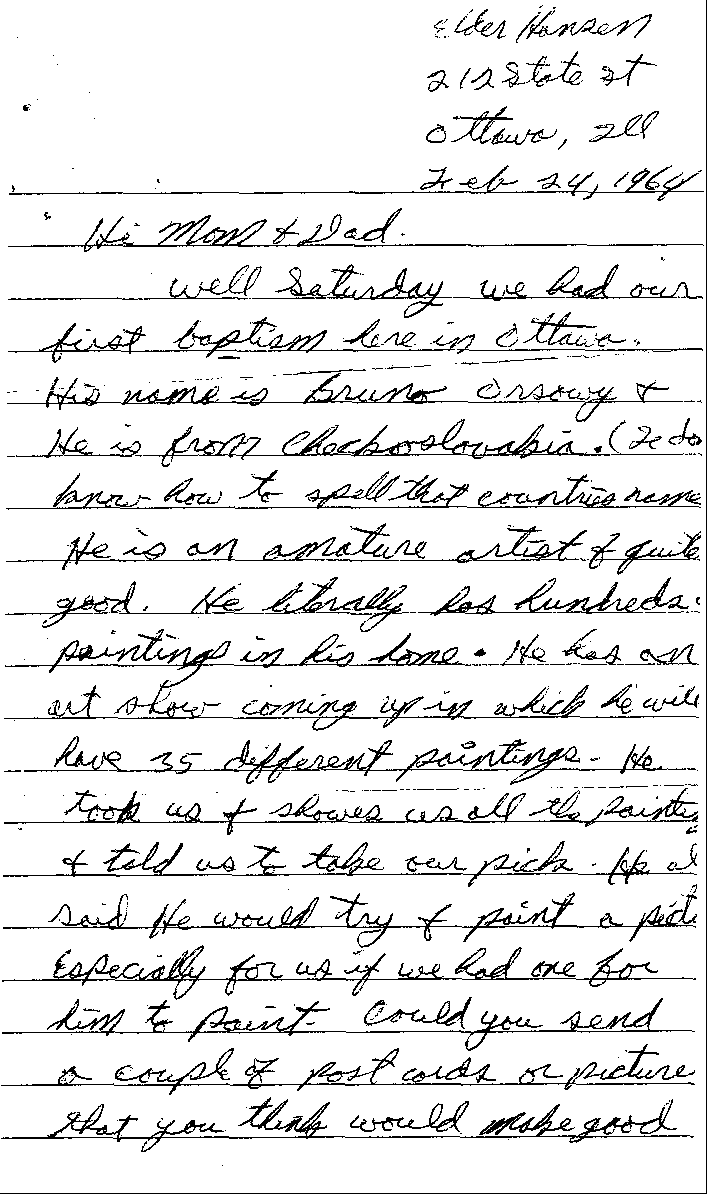 Elder Hansen
212 State st
Ottawa, Ill
Feb 24, 1964
Hi Mom & Dad.
well Saturday we had our
first baptism here in Ottawa.
His name is Bruno Orsowy &
He is from Checkoslovakia. (I do
know how to spell that countries name
He is an amature artist & quite
good. He literally has hundreds
paintings in his home. He has an
art show coming up in which he will
have 35 different paintings. He
took us & showes us all the
& told us to take our pick. He al
said He would try & paint a pictu
Especially for us if we had one for
him to paint. Could you send
a couple of post cards or picture
that you think would make good